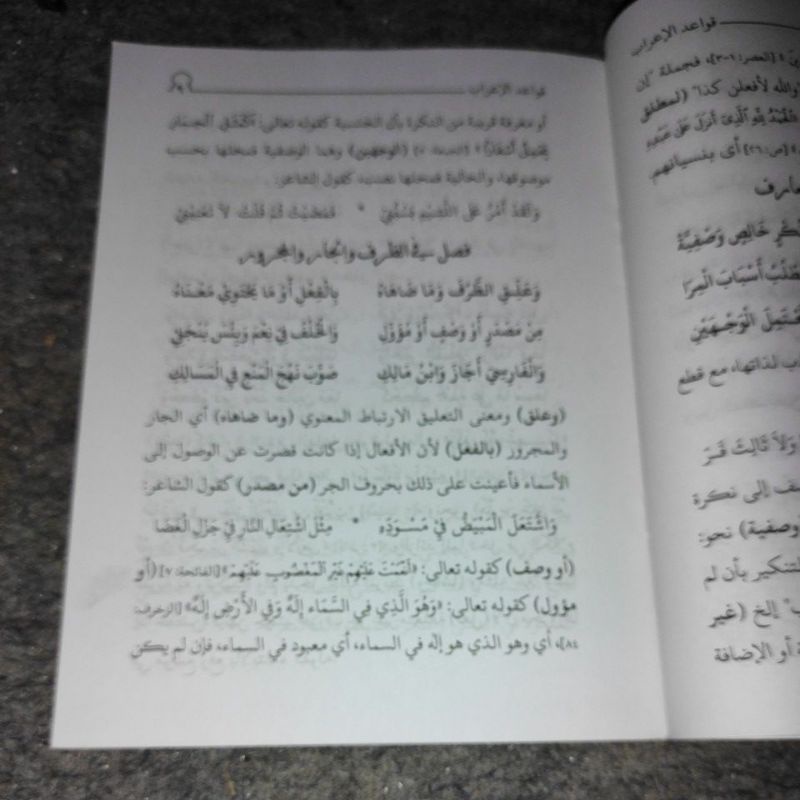 قواعد الإعراب
أو معرفة قريبة من النكرة بأل الجنسية كقوله تعالى: كَمَثَلِ الْحِمَارِ
يَحْمِلُ أَسْفَارًا (الوجهين) وهذا الوصفية فمحلها بحسب
موصوفها، والحالية فمحلها نصب كقول الشاعر:
وَلَقَدْ أَمُرُّ عَلَى اللَّئِيمِ يَسُبُّنِي * فَمَضَيْتُ ثُمَّ قُلْتُ لَا يَعْنِينِي
فصل في الظرف والجار والمجرور
وَعَلِّقِ الظَّرْفَ وَمَا ضَاهَاهُ بِالْفِعْلِ أَوْ مَا يَحْتَوِي مَعْنَاهُ
مِنْ مَصْدَرٍ أَوْ وَصْفٍ أَوْ مُؤَوَّلِ وَالْخُلْفُ فِي نِعْمَ وَبِئْسَ يَنْجَلِي
وَالْفَارِسِيْ أَجَازَ وَابْنُ مَالِكِ صَوَّبَ نَهْجَ الْمَنْعِ فِي الْمَسَالِكِ
(وعلق) ومعنى التعليق الارتباط المعنوي (وما ضاهاه) أي الجار
والمجرور (بالفعل) لأن الأفعال إذا كانت قصرت عن الوصول إلى
الأسماء فأعينت على ذلك بحروف الجر (من مصدر) كقول الشاعر:
وَاشْتَعَلَ الْمُبْيَضُّ فِي مُسْوَدِّهِ * مِثْلَ اشْتِعَالِ النَّارِ فِي جَزْلِ الْغَضَا
(أو وصف) كقوله تعالى: «أَنْعَمْتَ عَلَيْهِمْ غَيْرِ الْمَغْضُوبِ عَلَيْهِمْ» [الفاتحة: ٧] (أو
مؤول) كقوله تعالى: «وَهُوَ الَّذِي فِي السَّمَاءِ إِلَهٌ وَفِي الْأَرْضِ إِلَهٌ» [الزخرف:
٨٤]، أي وهو الذي هو إله في السماء، أي معبود في السماء، فإن لم يكن
قواعد الإعراب
[العصر: ١-٣]، فجملة "إن
والله لأفعلن كذا" (لمطلق
الْحَمْدُ لِلَّهِ الَّذِي أَنْزَلَ عَلَى عَبْدِهِ
[ص: ٢٦] أي بنسيانهم
خَالِصٍ وَصْفِيَّةٌ
أَسْبَابَ الْمِرَا
الْوَجْهَيْنِ
لذاتها، مع قطع
وَلَا ثَالِثَ
إلى نكرة
وصفية) نحو:
لتنكير بأن لم
إلخ (غير
أو الإضافة